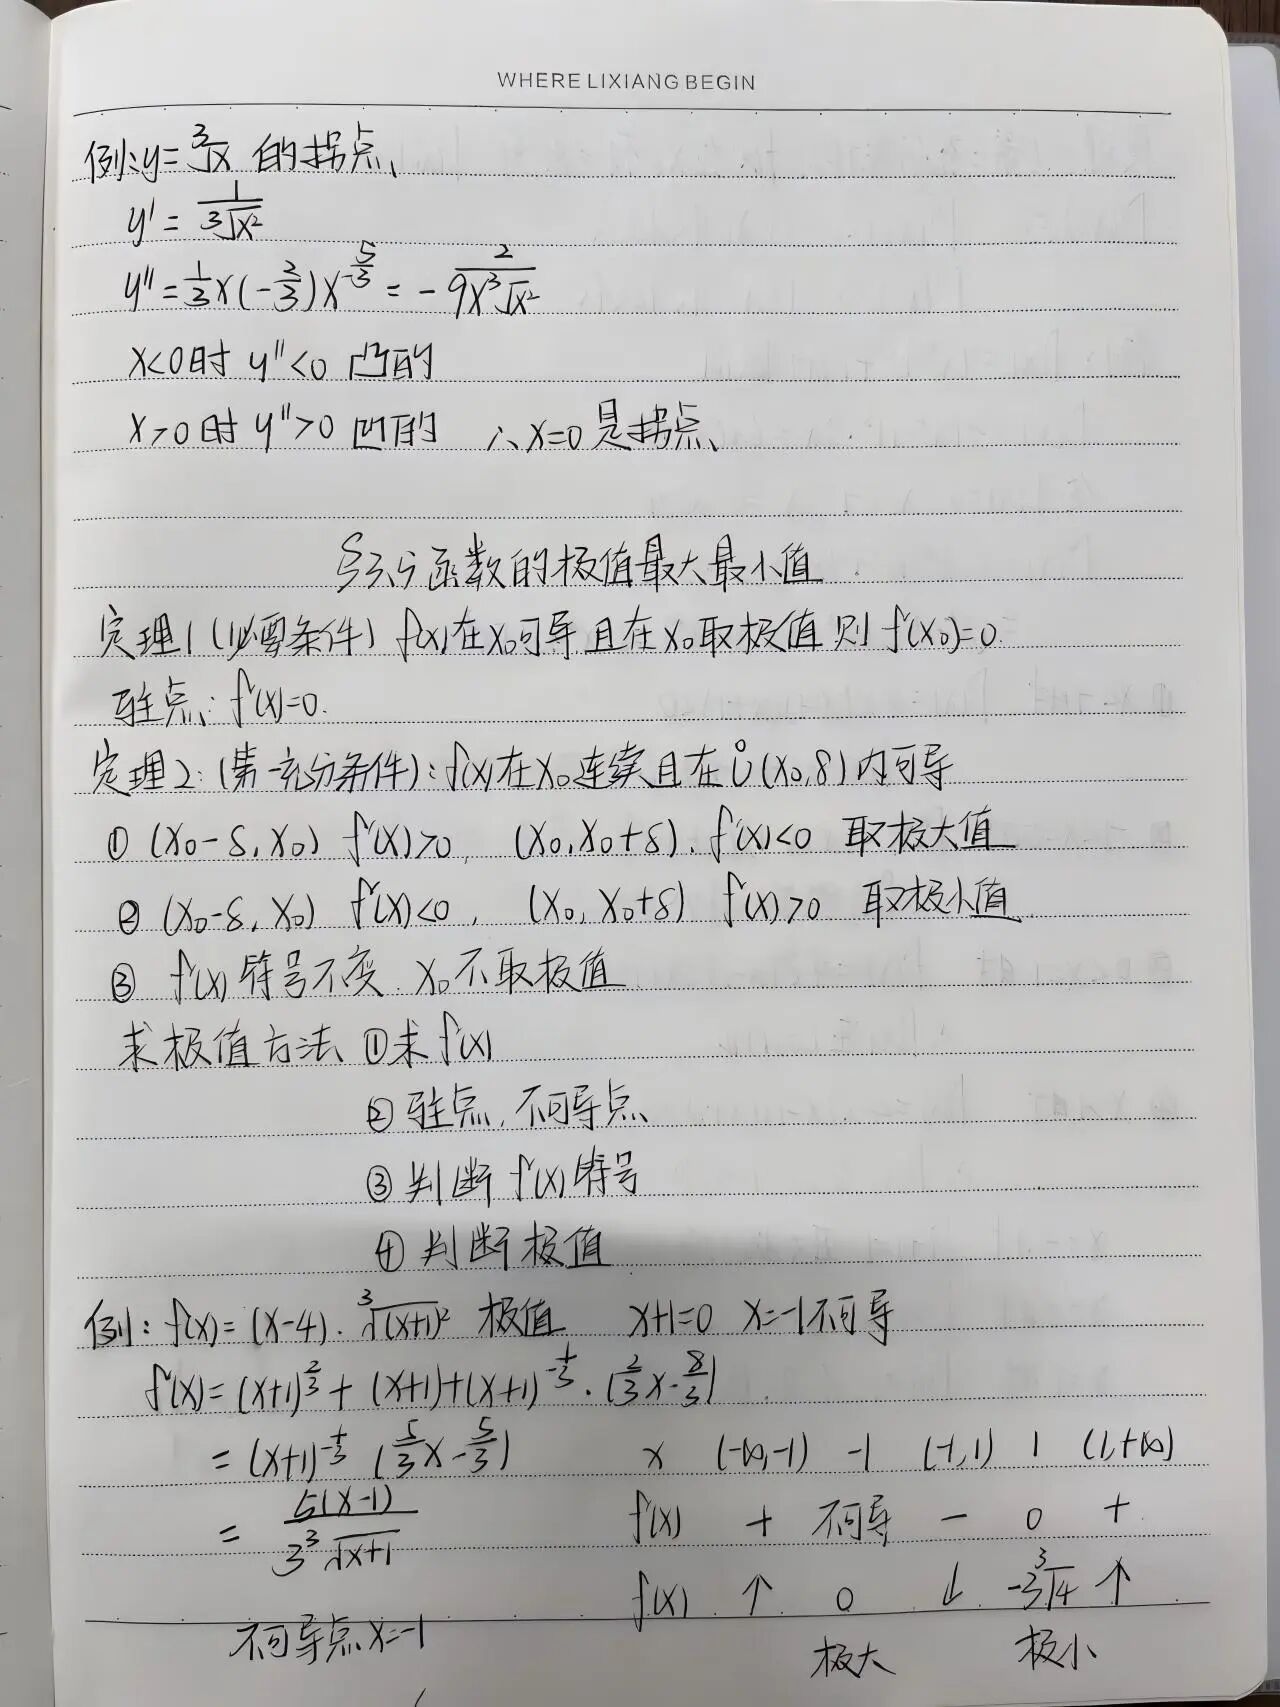 WHERE LIXIANG BEGIN
例:y=∛x 的拐点、
y'=1/(3√x²)
y''=1/3×(-2/3)x^(-5/3)=-2/(9x³√x²)
x<0时 y''<0 凸的
x>0时 y''>0 凹的 ∴x=0是拐点、
§3.5 函数的极值最大最小值
定理1(必要条件) f(x)在x₀可导且在x₀取极值则 f'(x₀)=0.
驻点: f'(x)=0.
定理2:(第一充分条件):f(x)在x₀连续且在Ů(x₀,δ)内可导
① (x₀-δ,x₀) f'(x)>0, (x₀,x₀+δ). f'(x)<0 取极大值
② (x₀-δ,x₀) f'(x)<0, (x₀,x₀+δ) f'(x)>0 取极小值
③ f'(x)符号不变. x₀不取极值
求极值方法 ①求f'(x)
②驻点,不可导点
③判断f'(x)符号
④判断极值
例:f(x)=(x-4)·∛(x+1)² 极值 x+1=0 x=-1不可导
f'(x)=(x+1)^(2/3)+(x+1)+(x+1)^(-1/3)·(2/3x-8/3)
=(x+1)^(-1/3)(5/3x-5/3) x (-∞,-1) -1 (-1,1) 1 (1,+∞)
=5(x-1)/(3∛x+1) f'(x) + 不可导 - 0 +
f(x) ↑ 0 ↓ -3∛4 ↑
不可导点x=-1 极大 极小